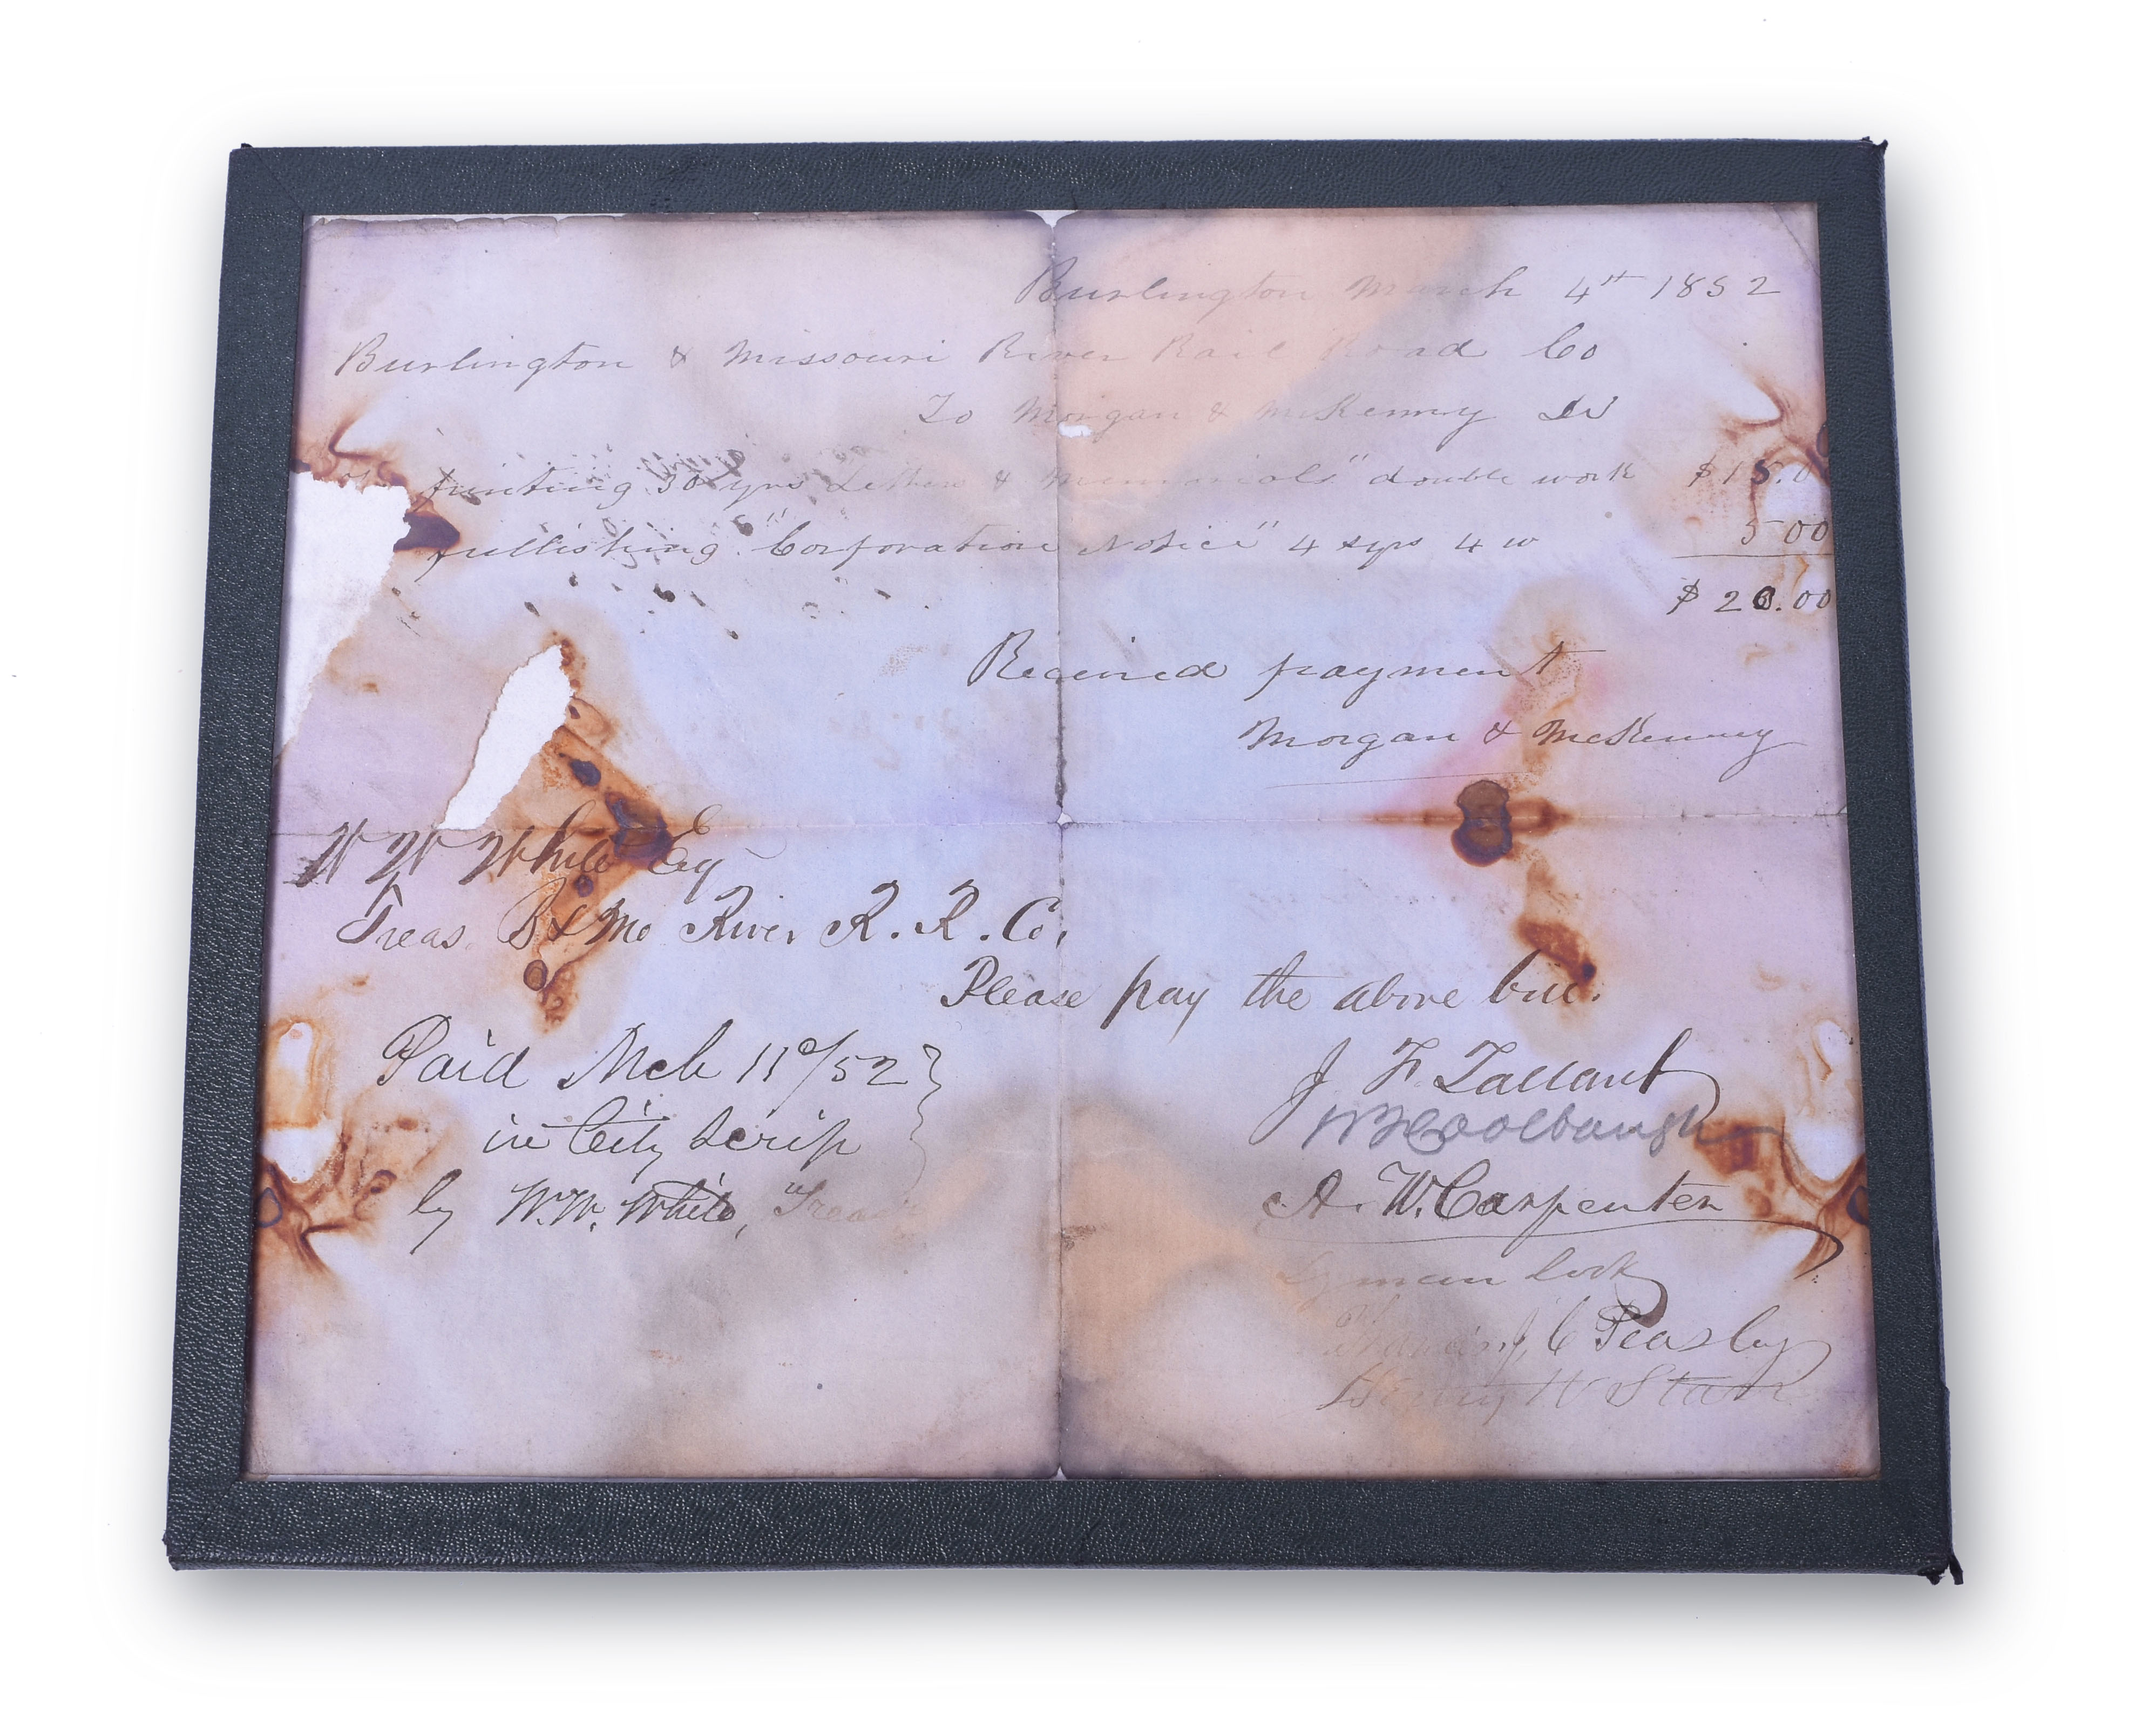 Burlington March 4th 1852
Burlington & Missouri River Rail Road Co
To Morgan & McKenny Dr
printing 50 "Letters & Memorials" double work $15.0
publishing "Corporation Notice" 4 sqrs 4 w 5 00
$20.00
Received payment
Morgan & McKenny
W W White Esq
Treas. B & Mo River R. R. Co.
Please pay the above bill.
Paid Mch 11th/52
in City Scrip
by W. W. White, Treas
J F Tallant
W F Coolbaugh
A. W. Carpenter
Lyman Cook
J. C Peasley
Henry W Starr